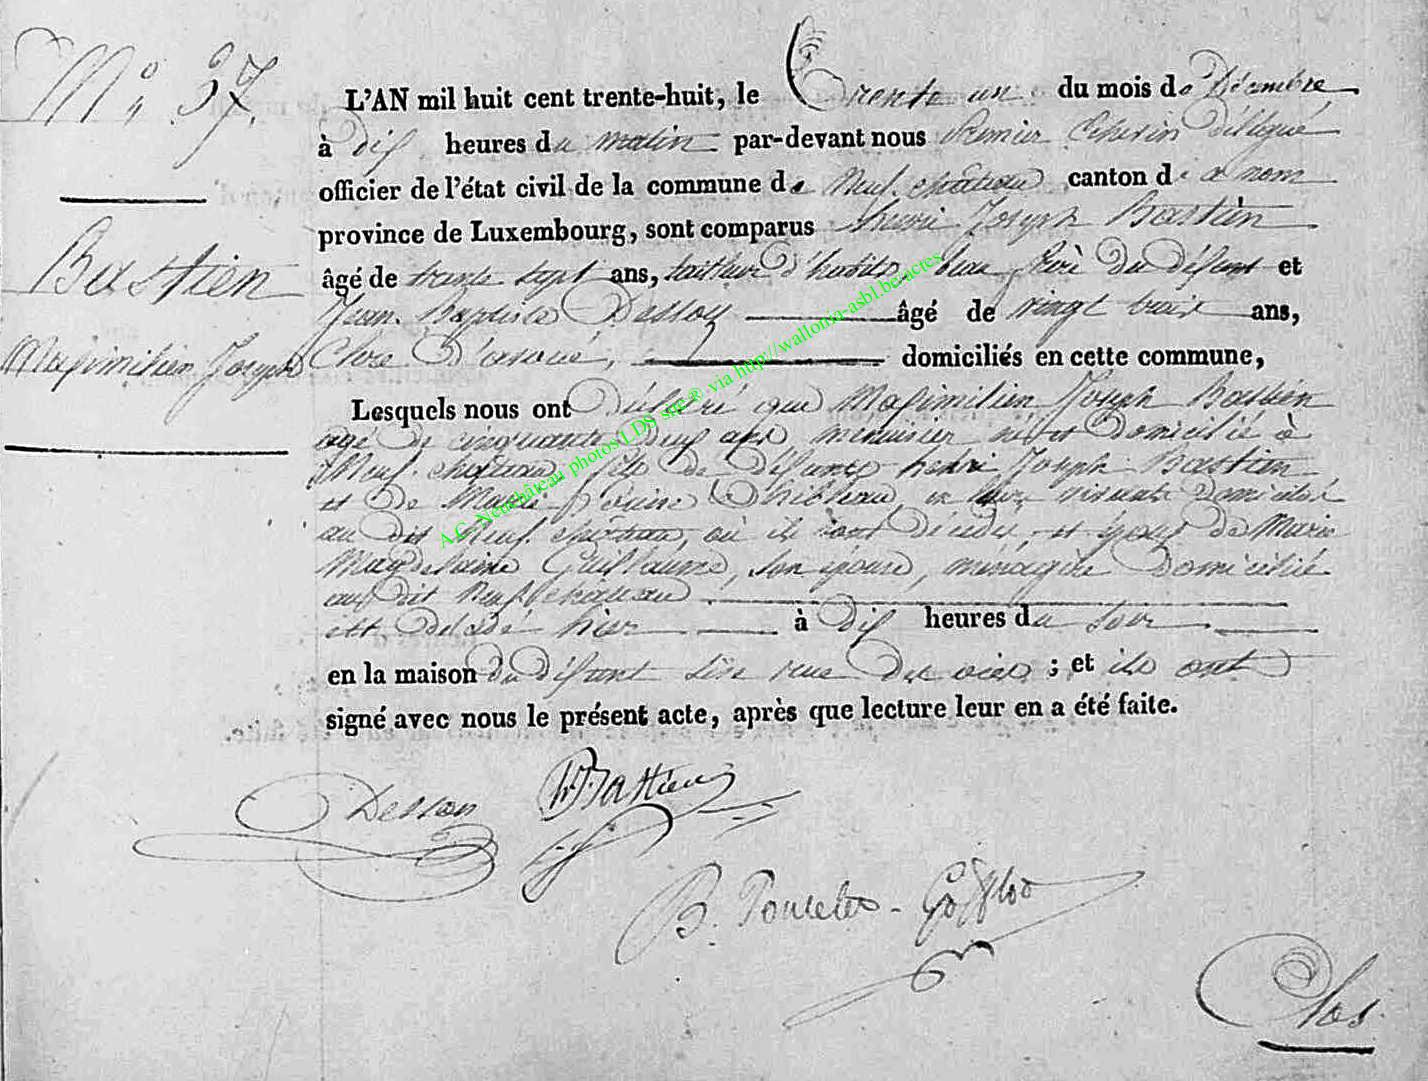 N° 37.
Bastien
Maximilien Joseph
L'AN mil huit cent trente-huit, le Trente un du mois de Décembre
à dix heures du matin par-devant nous Premier Echevin délégué
officier de l'état civil de la commune de Neufchateau canton de ce nom
province de Luxembourg, sont comparus henri Joseph Bastien
âgé de trente sept ans, tailleur d'habits, beau frère du défunt et
Jean Baptiste Dessoy âgé de vingt trois ans,
Clerc D'avoué, domiciliés en cette commune,
Lesquels nous ont Déclaré que Maximilien Joseph Bastien
agé de cinquante deux ans menuisier né et domicilié à
Neufchateau, fils de défunts henri Joseph Bastien
et de Marie en leur vivant domiciliés
au dit Neufchateau, où ils sont décédés, et époux de Marie
Magdelaine Guillaume, son épouse, ménagère domiciliée
au dit Neufchateau
est décédé hier à dix heures du soir
en la maison du défunt sise rue ; et ils ont
signé avec nous le présent acte, après que lecture leur en a été faite.
Dessoy HBastien
B. Poncelet-
Clos
A.C. Neufchâteau photos LDS site® via http://wallonia-asbl.be/actes